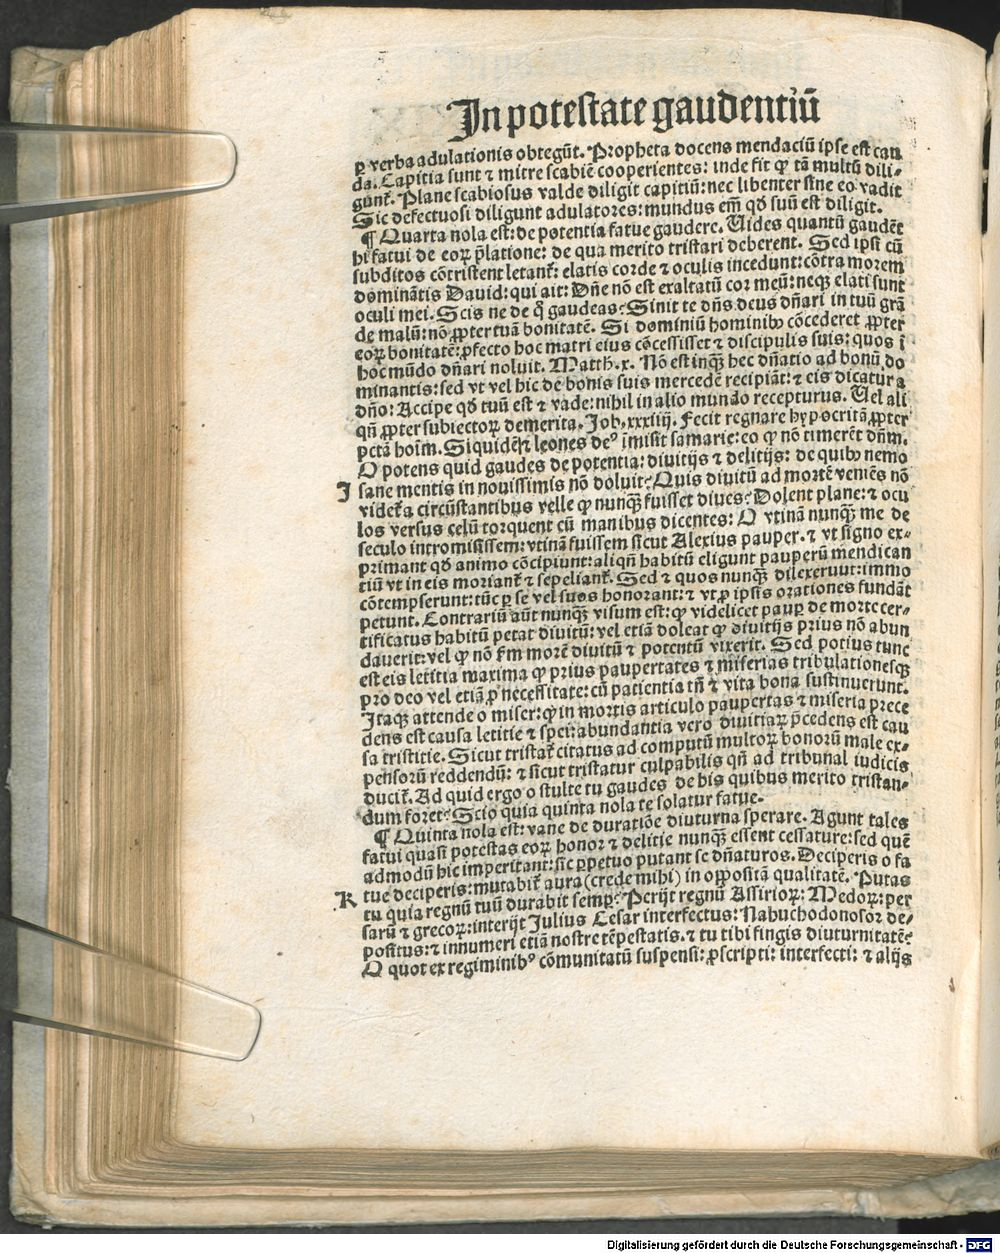 In potestate gaudentiū
ꝑ verba adulationis obtegūt. Propheta docens mendaciū ipse est cau
da. Capitia sunt ⁊ mitre scabiē cooperientes: inde fit ꝙ tā multū dili-
gunt᷑. Plane scabiosus valde diligit capitiū: nec libenter sine eo vadit
Sic defectuosi diligunt adulatores: mundus em̄ qd̓ suū est diligit.
¶ Quarta nola est: de potentia fatue gaudere. Uides quantū gaudēt
hi fatui de eoꝝ p̄latione: de qua merito tristari deberent. Sed ipsi cū
subditos cōtristent letant᷑: elatis corde ⁊ oculis incedunt: cōtra morem
dominātis Dauid: qui ait: Dn̄e nō est exaltatū cor meū: neqꝫ elati sunt
oculi mei. Scis ne de q̊ gaudeas? Sinit te dn̄s deus dn̄ari in tuū grā
de malū: nō ꝓpter tuā bonitatē. Si dominiū hominibꝰ cōcederet ꝓpter
eoꝝ bonitatē: ꝓfecto hoc matri eius cōcessisset ⁊ discipulis suis: quos ī
hoc mūdo dn̄ari noluit. Matth. x. Nō est inqꝫ hec dn̄atio ad bonū do
minantis: sed vt vel hic de bonis suis mercedē recipiāt: ⁊ eis dicatur a
dn̄o: Accipe qd̓ tuū est ⁊ vade: nihil in alio mundo recepturus. Uel ali
qn̄ ꝓpter subiectoꝝ demerita. Job. xxxiiij. Fecit regnare hypocritā ꝓpter
pctā hoīm. Siquidē ⁊ leones deꝰ īmisit samarie: eo ꝙ nō timerēt dn̄m.
O potens quid gaudes de potentia: diuitijs ⁊ delitijs: de quibꝰ nemo
J sane mentis in nouissimis nō doluit? Quis diuitū ad mortē veniēs nō
videt᷑ a circūstantibus velle ꝙ nunqꝫ fuisset diues? Dolent plane: ⁊ ocu
los versus celū torquent cū manibus dicentes: O vtinā nunqꝫ me de
seculo intromisissem: vtinā fuissem sicut Alexius pauper. ⁊ vt signo ex-
primant qd̓ animo cōcipiunt: aliqn̄ habitū eligunt pauperū mendican
tiū vt in eis moriant᷑ ⁊ sepeliant᷑. Sed ⁊ quos nunqꝫ dilexerūt: immo
cōtempserunt: tūc ꝑ se vel suos honorant: ⁊ vt ꝓ ipsis orationes fundāt
petunt. Contrariū aūt nunqꝫ visum est: ꝙ videlicet paupꝑ de morte cer-
tificatus habitū petat diuitū: vel etiā doleat ꝙ diuitijs prius nō abun
dauerit: vel ꝙ nō ẜm morē diuitū ⁊ potentū vixerit. Sed potius tunc
est eis letitia maxima ꝙ prius paupertates ⁊ miserias tribulationesqꝫ
pro deo vel etiā ꝓ necessitate: cū patientia tn̄ ⁊ vita bona sustinuerunt.
Itaqꝫ attende o miser: ꝙ in mortis articulo paupertas ⁊ miseria prece
dens est causa letitie ⁊ spei: abundantia vero diuitiaꝝ p̄cedens est cau
sa tristitie. Sicut tristat᷑ citatus ad computū multoꝝ bonorū male ex-
pensorū reddendū: ⁊ sicut tristatur culpabilis qn̄ ad tribunal iudicis
ducit᷑. Ad quid ergo o stulte tu gaudes de his quibus merito tristan-
dum foret? Scio quia quinta nola te solatur fatue.
¶ Quinta nola est: vane de duratiōe diuturna sperare. Agunt tales
fatui quasi potestas eoꝝ honor ⁊ delitie nunqꝫ essent cessature: sed quē
admodū hic imperitant: sic ꝑpetuo putant se dn̄aturos. Deciperis o fa
K tue deciperis: mutabit᷑ aura (crede mihi) in oppositā qualitatē. Putas
tu quia regnū tuū durabit sempꝑ? Perijt regnū Assirioꝝ: Medoꝝ: per
sarū ⁊ grecoꝝ: interijt Julius Cesar interfectus: Nabuchodonosor de-
positus: ⁊ innumeri etiā nostre tēpestatis. ⁊ tu tibi fingis diuturnitatē?
O quot ex regiminibꝰ cōmunitatū suspensi: ꝓscripti: interfecti: ⁊ alijs
Digitalisierung gefördert durch die Deutsche Forschungsgemeinschaft - DFG